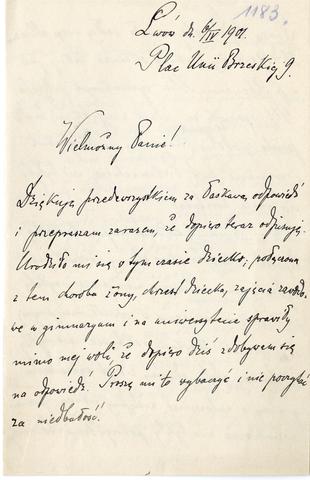 1183.
Lwów dn. 6/IV 1901.
Plac Unii Brzeskiej 9.
Wielmożny Panie!
Dziękuję przedewszystkiem za łaskawą odpowiedź
i przepraszam zarazem, że dopiero teraz odpisuję.
Urodziło mi się o tym czasie dziecko, połączona
z tem choroba żony, chrzest dziecka, zajęcia zawodo-
we w gimnazyum i na uniwersytecie sprawiły
mimo mej woli, że dopiero dziś zdobywam się
na odpowiedź. Proszę mi to wybaczyć i nie poczytać
za niedbałość.